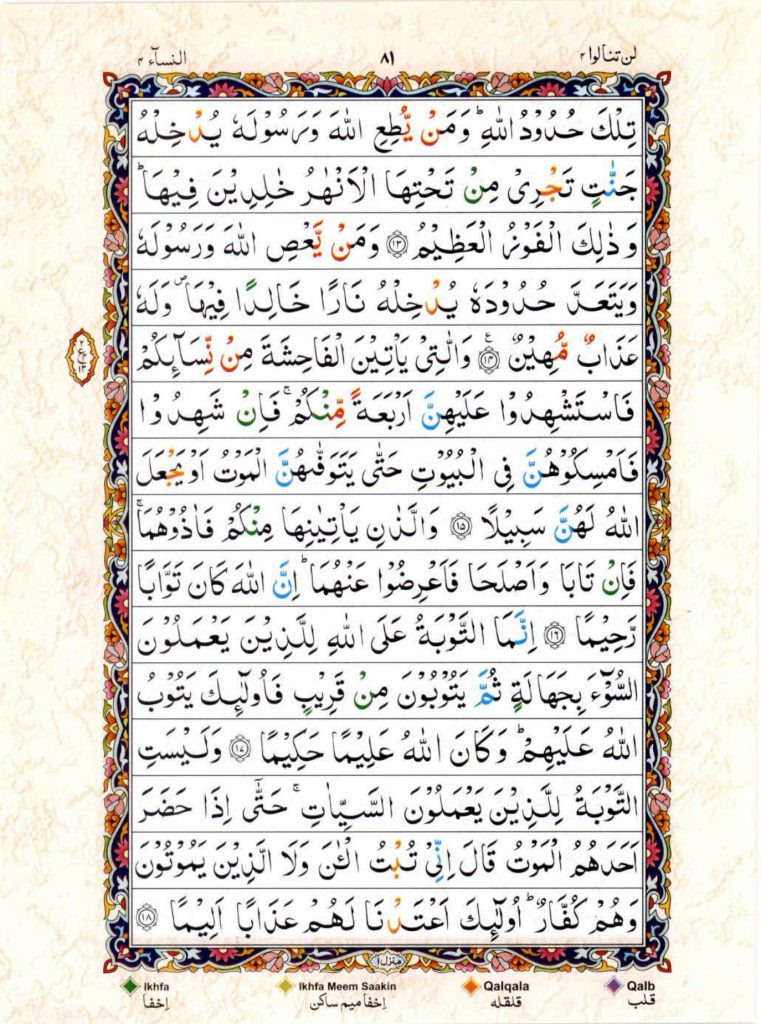 لن تنالوا ۴ ۸۱ النسآء ۴
تِلْكَ حُدُوْدُ اللّٰهِ ؕ وَمَنْ يُّطِعِ اللّٰهَ وَرَسُوْلَهٗ يُدْخِلْهُ
جَنّٰتٍ تَجْرِىْ مِنْ تَحْتِهَا الْاَنْهٰرُ خٰلِدِيْنَ فِيْهَا ؕ
وَذٰلِكَ الْفَوْزُ الْعَظِيْمُ ﴿۱۳﴾ وَمَنْ يَّعْصِ اللّٰهَ وَرَسُوْلَهٗ
وَيَتَعَدَّ حُدُوْدَهٗ يُدْخِلْهُ نَارًا خَالِدًا فِيْهَا ۪ وَلَهٗ
عَذَابٌ مُّهِيْنٌ ﴿۱۴﴾ ع وَالّٰتِىْ يَاْتِيْنَ الْفَاحِشَةَ مِنْ نِّسَآئِكُمْ
فَاسْتَشْهِدُوْا عَلَيْهِنَّ اَرْبَعَةً مِّنْكُمْ ۚ فَاِنْ شَهِدُوْا
فَاَمْسِكُوْهُنَّ فِى الْبُيُوْتِ حَتّٰى يَتَوَفّٰٮهُنَّ الْمَوْتُ اَوْ يَجْعَلَ
اللّٰهُ لَهُنَّ سَبِيْلًا ﴿۱۵﴾ وَالَّذٰنِ يَاْتِيٰنِهَا مِنْكُمْ فَاٰذُوْهُمَا ۚ
فَاِنْ تَابَا وَاَصْلَحَا فَاَعْرِضُوْا عَنْهُمَا ؕ اِنَّ اللّٰهَ كَانَ تَوَّابًا
رَّحِيْمًا ﴿۱۶﴾ اِنَّمَا التَّوْبَةُ عَلَى اللّٰهِ لِلَّذِيْنَ يَعْمَلُوْنَ
السُّوْٓءَ بِجَهَالَةٍ ثُمَّ يَتُوْبُوْنَ مِنْ قَرِيْبٍ فَاُولٰٓئِكَ يَتُوْبُ
اللّٰهُ عَلَيْهِمْ ؕ وَكَانَ اللّٰهُ عَلِيْمًا حَكِيْمًا ﴿۱۷﴾ وَلَيْسَتِ
التَّوْبَةُ لِلَّذِيْنَ يَعْمَلُوْنَ السَّيِّاٰتِ ۚ حَتّٰٓى اِذَا حَضَرَ
اَحَدَهُمُ الْمَوْتُ قَالَ اِنِّىْ تُبْتُ الْـٰٔنَ وَلَا الَّذِيْنَ يَمُوْتُوْنَ
وَهُمْ كُفَّارٌ ؕ اُولٰٓئِكَ اَعْتَدْنَا لَهُمْ عَذَابًا اَلِيْمًا ﴿۱۸﴾
منزل ۱
Ikhfa Ikhfa Meem Saakin Qalqala Qalb
اِخفا اِخفا میم ساکن قلقله قلب